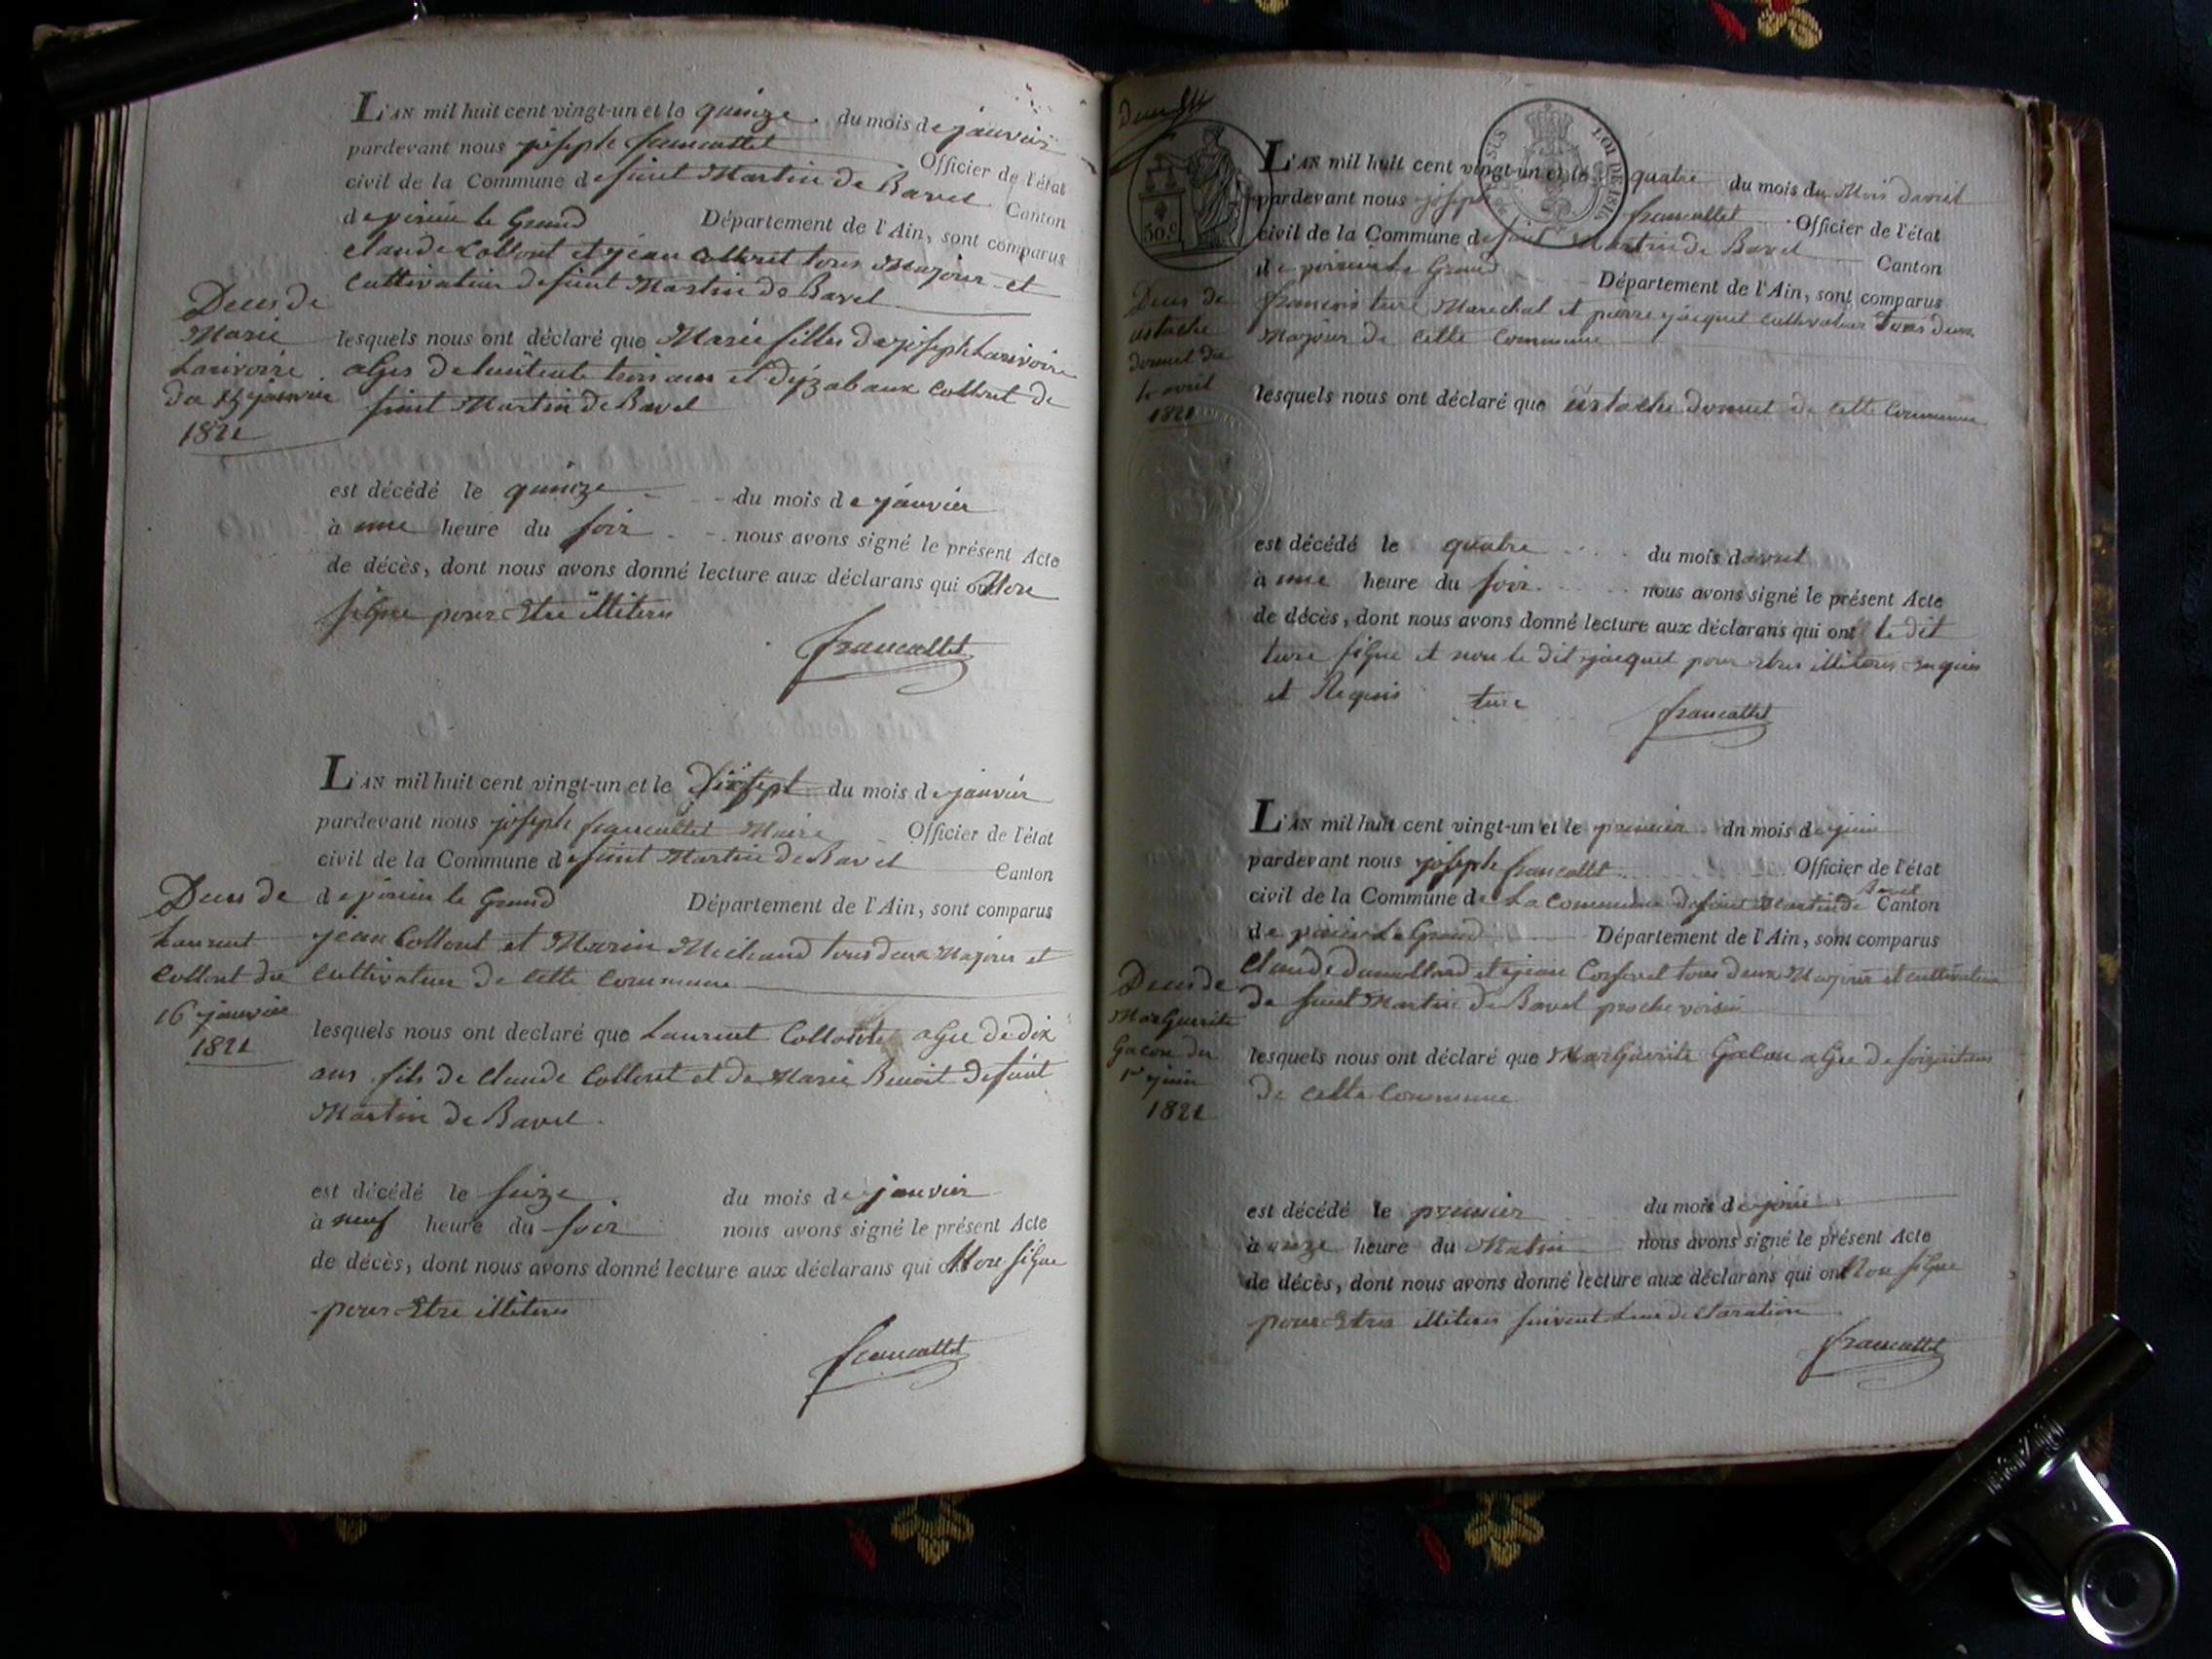 L'AN mil huit cent vingt-un et le quinze du mois de janvier
pardevant nous joseph francallet Officier de l'état
civil de la Commune de saint Martin de Bavel Canton
de virieu le Grand Département de l'Ain, sont comparus
claude Collont et jean Collont tous Majeur et
Cultivateur de saint Martin de Bavel
Deces de
Marie
Larivoire
du 15 janvier
1821
lesquels nous ont déclaré que Marie filles de joseph Larivoire
agés de huitente trois ans et Collont de
saint Martin de Bavel
est décédé le quinze du mois de janvier
à une heure du soir nous avons signé le présent Acte
de décès, dont nous avons donné lecture aux déclarans qui ont Non
signe pour Etre illiteres
francallet
L'AN mil huit cent vingt-un et le Dixsept du mois de janvier
pardevant nous joseph francallet Maire Officier de l'état
civil de la Commune de saint Martin de Bavel Canton
de virieu le Grand Département de l'Ain, sont comparus
jean Collont et Marin Michaud tous deux Majeurs et
Cultivateur de Cette Commune
Deces de
Laurent
Collont du
16 janvier
1821
lesquels nous ont declaré que Laurent Collont agee de dix
ans fils de Claude Collont et de Marie Benoit de saint
Martin de Bavel.
est décédé le seize du mois de janvier
à neuf heure du soir nous avons signé le présent Acte
de décès, dont nous avons donné lecture aux déclarans qui ont Non signe
pour Etre illiteres
francallet
SUS LOI DE 1816
50.c
L'AN mil huit cent vingt-un et le quatre du mois du Mois davril
pardevant nous joseph francallet Officier de l'état
civil de la Commune de saint Martin de Bavel Canton
de virieu le Grand Département de l'Ain, sont comparus
francois ture Marechal et pierre jacquet Cultivateur tous deux
Majeur de Cette Commune
Deces de
ustache
dornet du
4 avril
1821
lesquels nous ont déclaré que ustache dornet de Cette Commune
est décédé le quatre du mois davril
à une heure du soir nous avons signé le présent Acte
de décès, dont nous avons donné lecture aux déclarans qui ont le dit
ture signe et non le dit jacquet pour etres illiteres enquis
et Requis ture francallet
L'AN mil huit cent vingt-un et le premier du mois de juin
pardevant nous joseph francallet Officier de l'état
civil de la Commune de La Commune de saint Martin de Bavel Canton
de virieu Le Grand Département de l'Ain, sont comparus
Claude Dumollard et jean tous deux Majeur et cultivateur
de saint Martin de Bavel proche voisin
Deces de
Marguerite
Gacon du
1er juin
1821
lesquels nous ont déclaré que Marguerite Gacon agee de
de Cette Commune
est décédé le premier du mois de juin
à onze heure du Matin nous avons signé le présent Acte
de décès, dont nous avons donné lecture aux déclarans qui ont Non signe
pour Etres illiteres suivent leur declaration
francallet